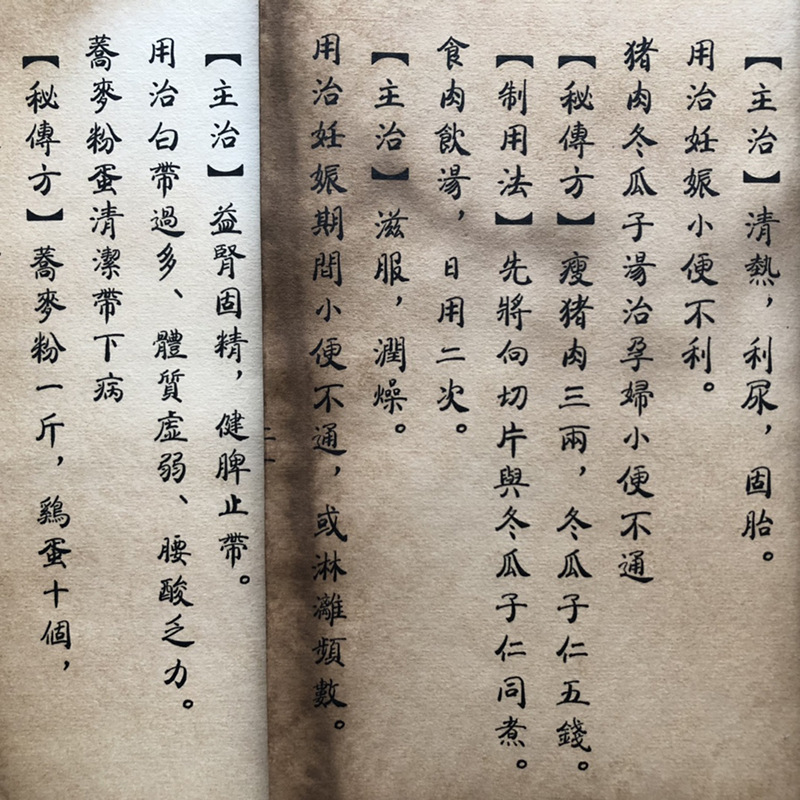 【主治】清熱，利尿，固胎。
用治妊娠小便不利。
猪肉冬瓜子湯治孕婦小便不通
【秘傳方】瘦猪肉三兩，冬瓜子仁五錢。
【制用法】先將肉切片與冬瓜子仁同煮。
食肉飲湯，日用二次。
【主治】滋服，潤燥。
用治妊娠期間小便不通，或淋灕頻數。
【主治】益腎固精，健脾止帶。
用治白帶過多、體質虛弱、腰酸乏力。
蕎麥粉蛋清潔帶下病
【秘傳方】蕎麥粉一斤，鷄蛋十個，